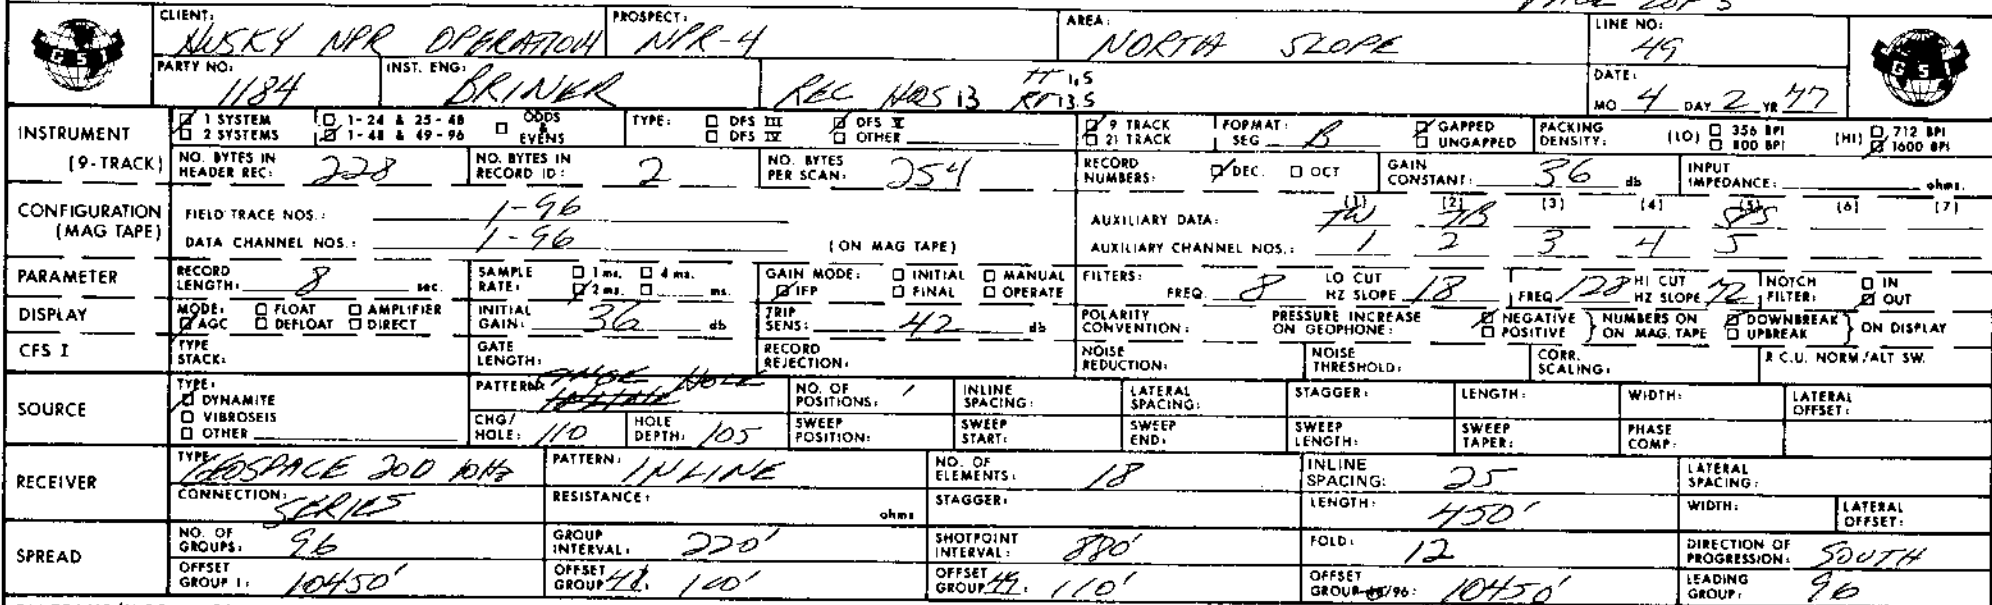 PAGE 2 OF 3
CLIENT: HUSKY NPR OPERATION PROSPECT: NPR-4 AREA: NORTH SLOPE LINE NO: 49
GSI
PARTY NO: 1184 INST. ENG: BRINER REC HQS 13 1.5 RT 13.5 DATE: MO 4 DAY 2 YR 77
GSI
INSTRUMENT (9-TRACK)
1 SYSTEM 1-24 & 25-48 ODDS & EVENS TYPE: DFS III DFS V 9 TRACK FORMAT: SEG B GAPPED PACKING DENSITY: (LO) 356 BPI (HI) 712 BPI
2 SYSTEMS 1-48 & 49-96 DFS IV OTHER 21 TRACK UNGAPPED 800 BPI 1600 BPI
NO. BYTES IN HEADER REC: 228 NO. BYTES IN RECORD ID: 2 NO. BYTES PER SCAN: 254 RECORD NUMBERS: DEC. OCT GAIN CONSTANT: 36 db INPUT IMPEDANCE: ohms.
CONFIGURATION (MAG TAPE)
FIELD TRACE NOS.: 1-96 AUXILIARY DATA: (1) TW (2) TB (3) (4) (5) (6) (7)
DATA CHANNEL NOS.: 1-96 (ON MAG TAPE) AUXILIARY CHANNEL NOS.: 1 2 3 4 5
PARAMETER RECORD LENGTH: 8 sec. SAMPLE RATE: 1 ms. 4 ms. 2 ms. ms. GAIN MODE: INITIAL MANUAL IFP FINAL OPERATE FILTERS: FREQ. 8 LO CUT HZ SLOPE 18 FREQ 128 HI CUT HZ SLOPE 72 NOTCH FILTER: IN OUT
DISPLAY MODE: FLOAT AMPLIFIER AGC DEFLOAT DIRECT INITIAL GAIN: 36 db TRIP SENS: 42 db POLARITY CONVENTION: PRESSURE INCREASE ON GEOPHONE: NEGATIVE POSITIVE } NUMBERS ON ON MAG. TAPE DOWNBREAK UPBREAK } ON DISPLAY
CFS I TYPE STACK: GATE LENGTH: RECORD REJECTION: NOISE REDUCTION: NOISE THRESHOLD: CORR. SCALING: R.C.U. NORM/ALT SW.
SOURCE TYPE: DYNAMITE VIBROSEIS OTHER PATTERN: HOLE NO. OF POSITIONS: 1 INLINE SPACING: LATERAL SPACING: STAGGER: LENGTH: WIDTH: LATERAL OFFSET:
CHG/HOLE: 110 HOLE DEPTH: 105 SWEEP POSITION: SWEEP START: SWEEP END: SWEEP LENGTH: SWEEP TAPER: PHASE COMP:
RECEIVER TYPE: GEOSPACE 20D 10Hz PATTERN: INLINE NO. OF ELEMENTS: 18 INLINE SPACING: 25 LATERAL SPACING:
CONNECTION: SERIES RESISTANCE: ohms STAGGER: LENGTH: 450' WIDTH: LATERAL OFFSET:
SPREAD NO. OF GROUPS: 96 GROUP INTERVAL: 220' SHOTPOINT INTERVAL: 880' FOLD: 12 DIRECTION OF PROGRESSION: SOUTH
OFFSET GROUP 1: 10450' OFFSET GROUP 48: 110' OFFSET GROUP 49: 110' OFFSET GROUP 48/96: 10450' LEADING GROUP: 96